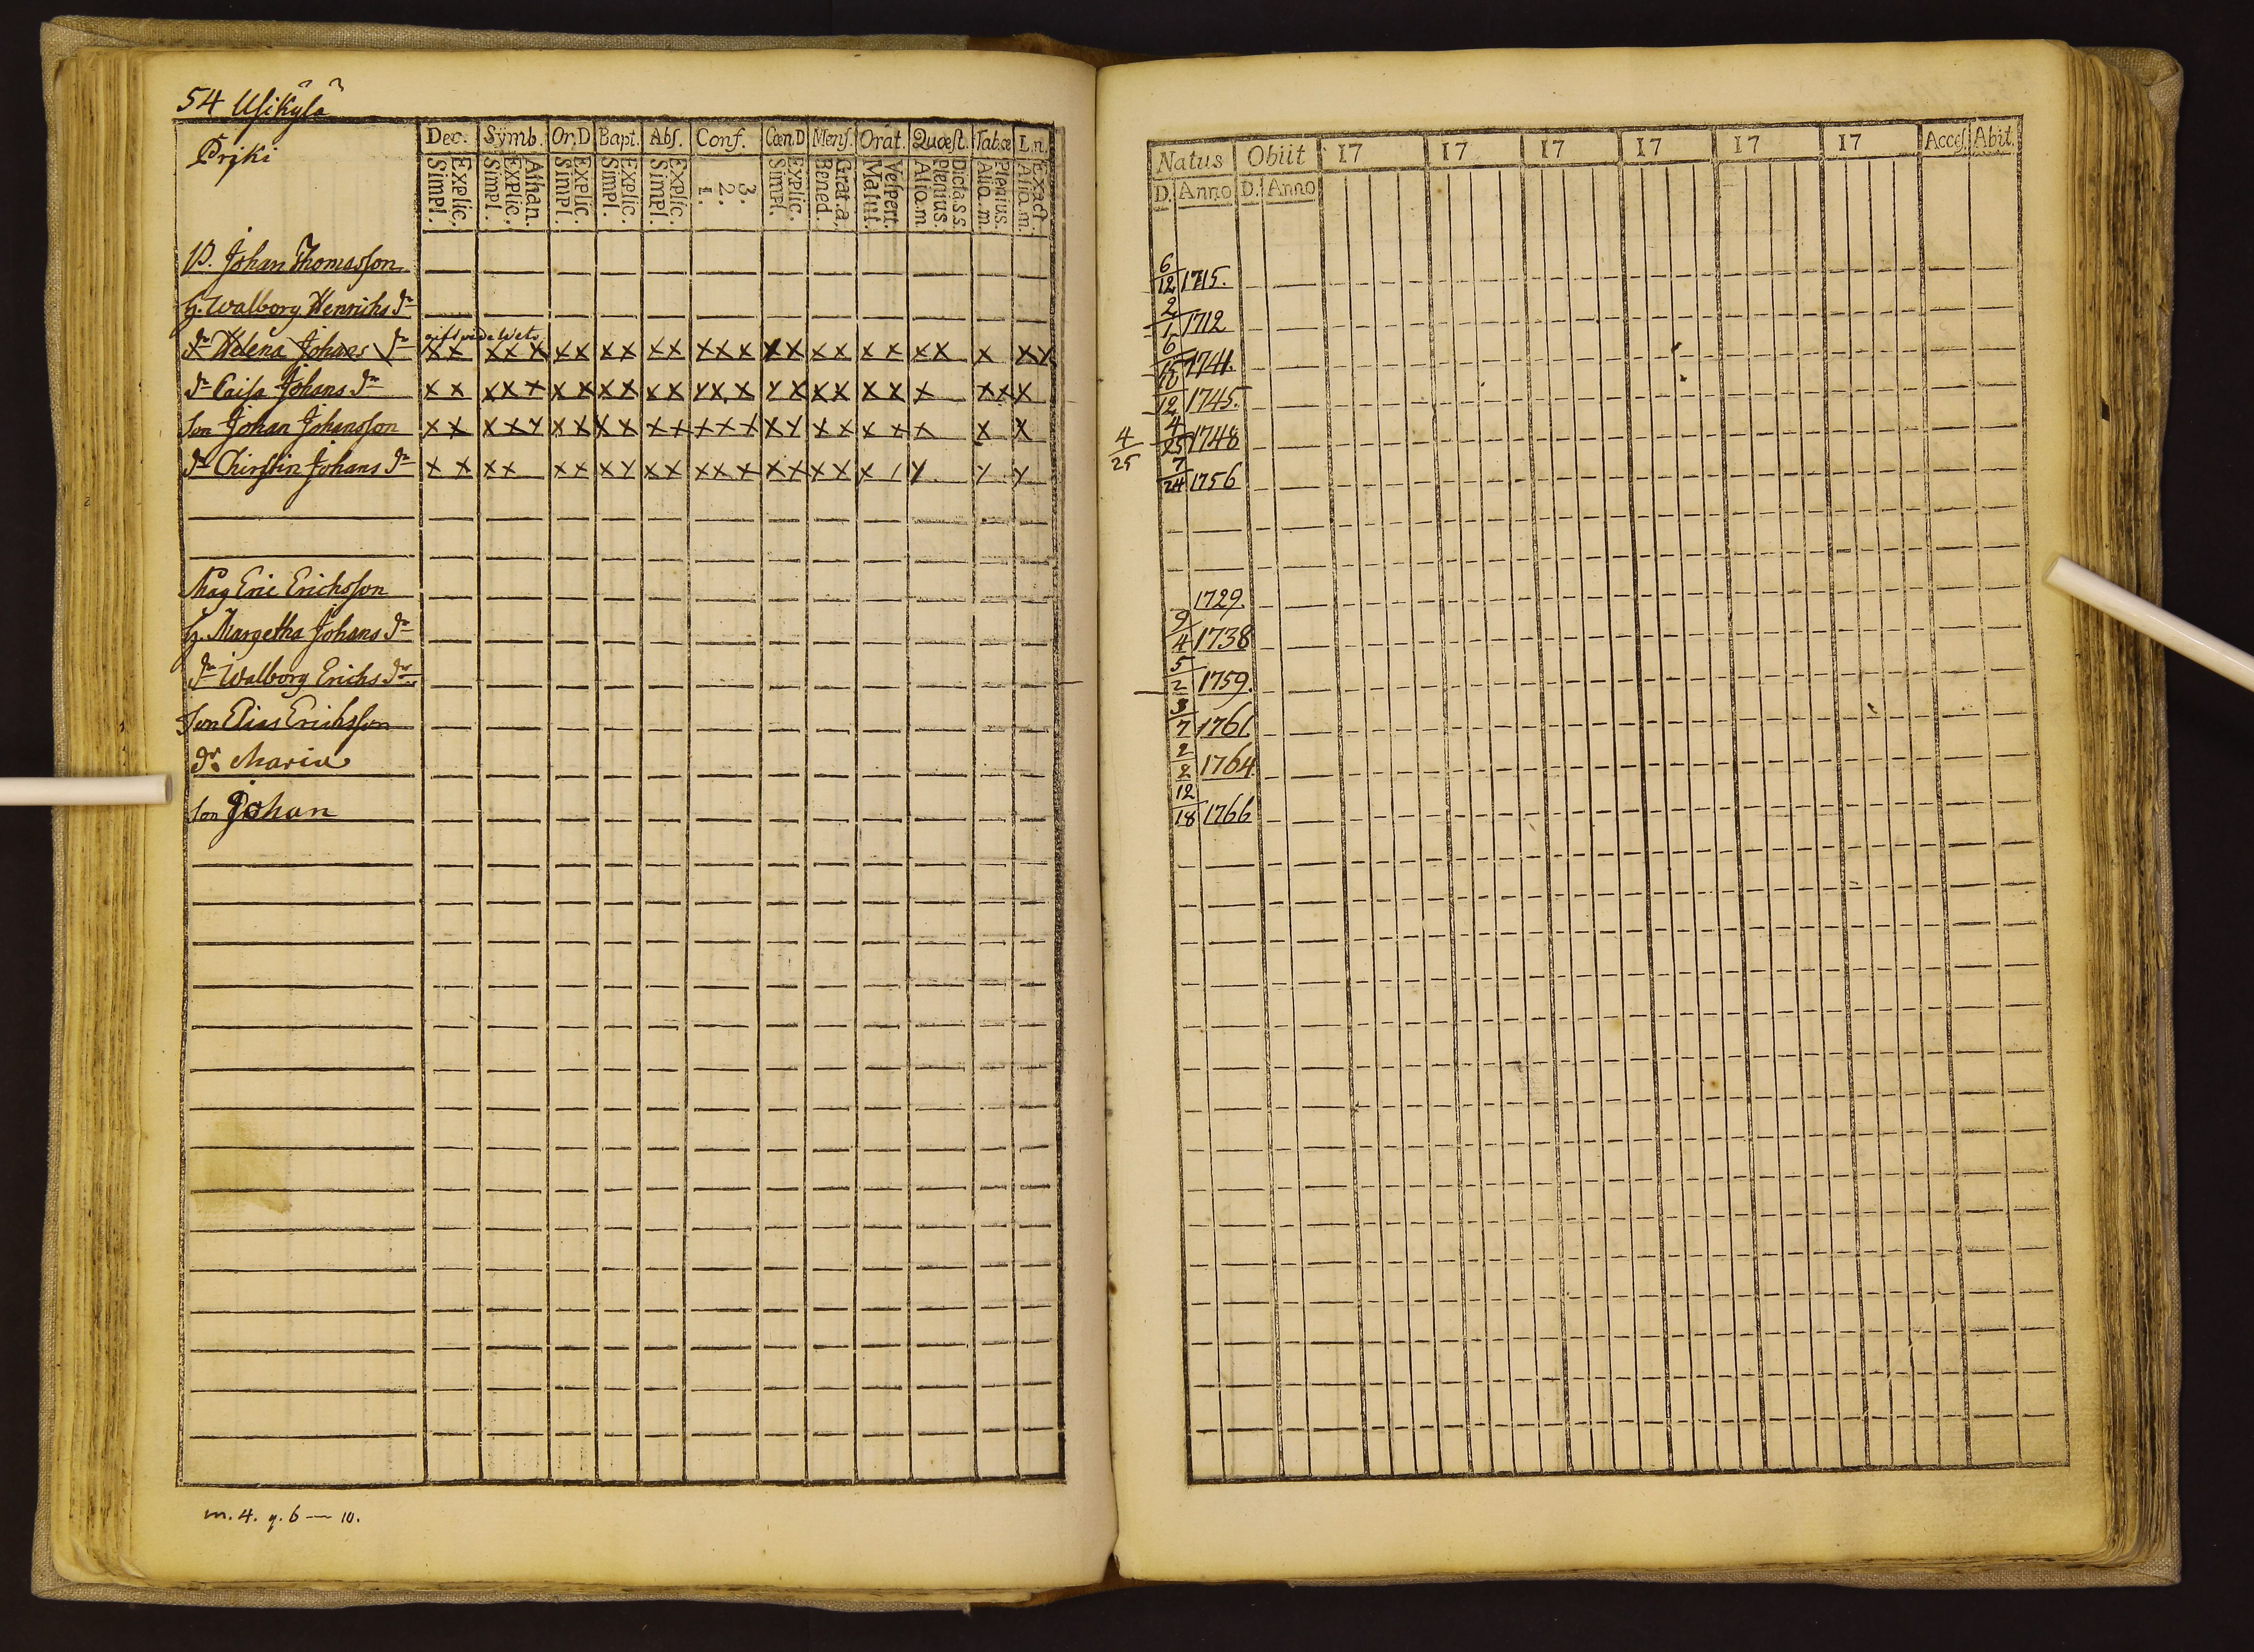 54 Usikÿlä
Prjki
Dec. Symb. Or.D Bapt. Abſ. Conf. Cœn.D Menſ. Orat. Quæſt. Tab.œ L.n.
Explic. Simpl. Athan. Explic. Simpl. Explic. Simpl. Explic. Simpl. Explic. Simpl. 3. 2. 1. Explic. Simpl. Grat.a. Bened. Veſpert. Matut. Dicta S.S. Plenius. Aliq.m Plenius. Aliq.m. Exact. Aliq.m.
Johan Thomasson
H. Walborg Henrichs dr
gift vide Wets
dr Helena Johans dr x x x x x x x x x x x x x x x x x x x x x x x x x x
dr Caisa Johans dr x x x x x x x x x x x x x x x x x x x x x x x x x
Son Johan Johansson x x x x x x x x x x x x x x x x x x x x x x x
dr Chirstin Johans dr x x x x x x x x x x x x x x x x x x / x x x
Måg Eric Erichsson
H. Margetha Johans dr
dr Walborg Erichs dr
Son Elias Erichsson
dr. Maria
Son Johan
m. 4. q. 6 — 10.
Natus Obiit 17 17 17 17 17 17 Acceſ. Abit.
D. Anno D. Anno
6/12 1715.
2/1 1712
6/15 1741.
10/12 1745.
4/25 4/25 1748
7/24 1756
1729.
9/4 1738
5/2 1759.
3/7 1761
2/2 1764
12/18 1766